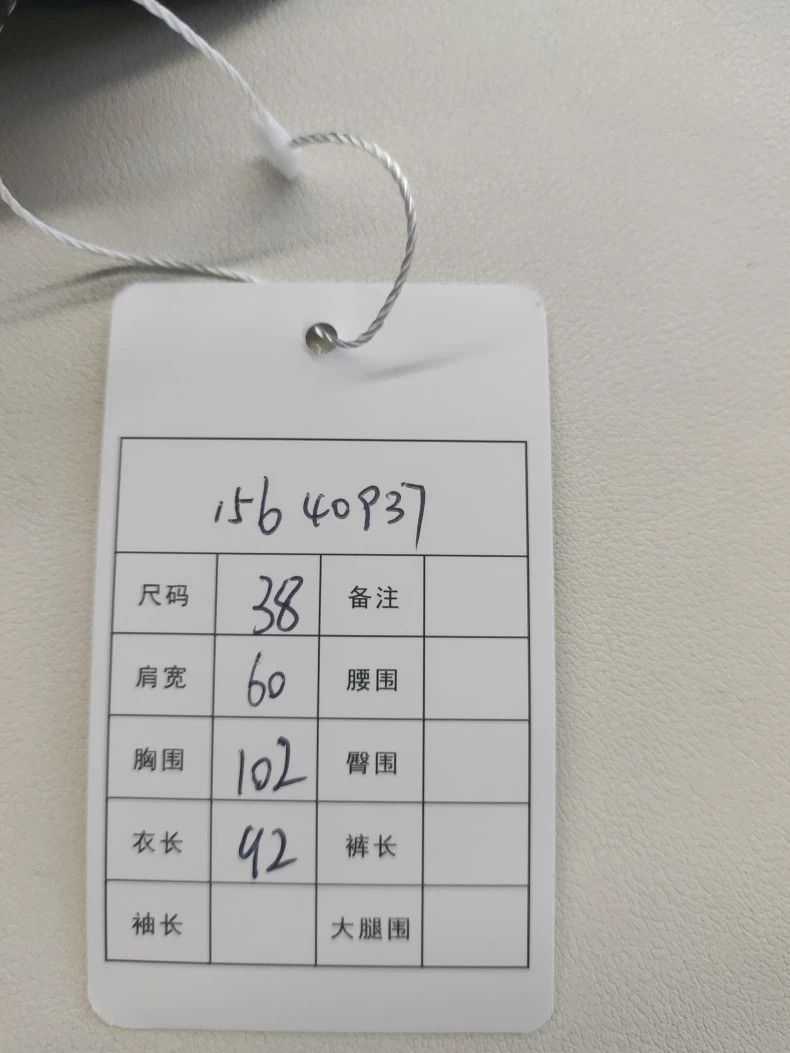 156 40937
尺码 38 备注
肩宽 60 腰围
胸围 102 臀围
衣长 92 裤长
袖长 大腿围